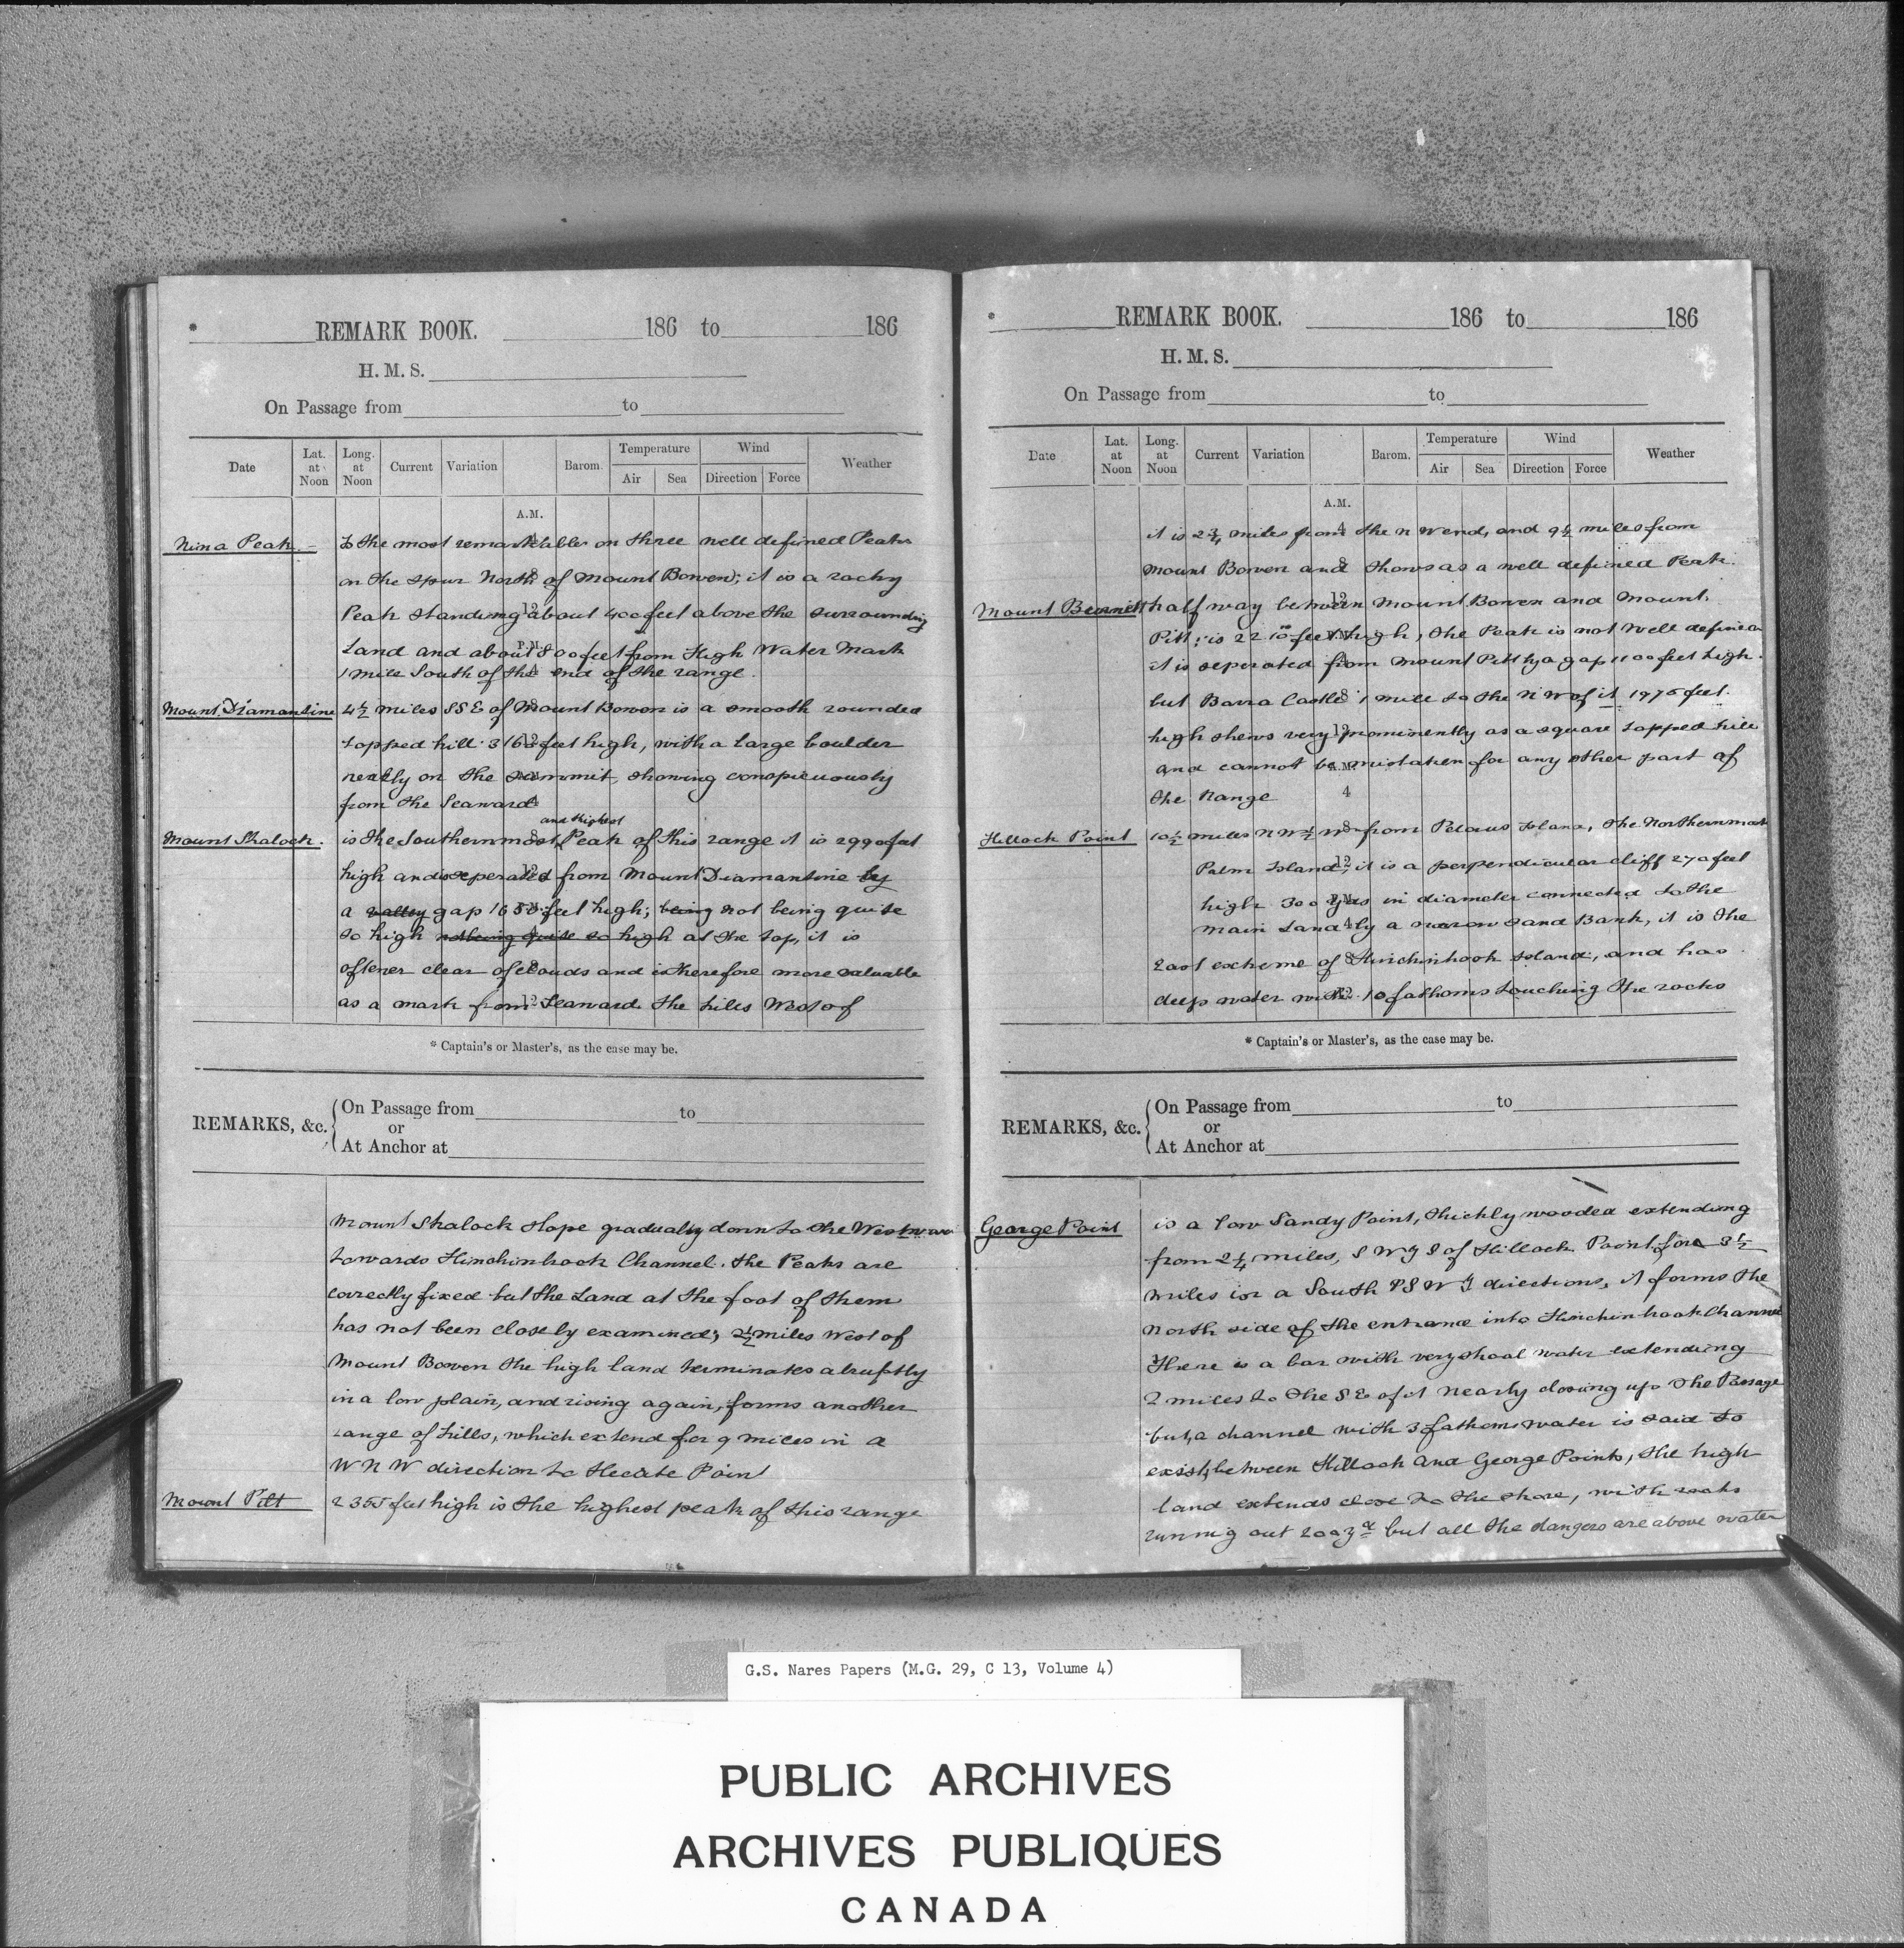 * REMARK BOOK. 186 to 186
H. M. S.
On Passage from to
Date
Lat. at Noon
Long. at Noon
Current
Variation
Barom.
Temperature
Air
Sea
Wind
Direction
Force
Weather
A.M.
Nina Peak. - Is the most remarkable on three well defined Peaks
on the spur North of Mount Bowen; it is a rocky
Peak standing about 400 feet above the surrounding
Land and about 800 feet from High Water Mark
1 mile South of the end of the range.
Mount Diamantine 4½ miles SSE of Mount Bowen is a smooth rounded
topped hill 3165 feet high, with a large boulder
nearly on the summit, showing conspicuously
from the Seaward
and highest
Mount Shalock. is the Southernmost Peak of this range it is 2990 feet
high and is seperated from Mount Diamantine by
a valley gap 1650 feet high; being not being quite
so high not being quite so high at the top, it is
oftener clear of clouds and is therefore more valuable
as a mark from Seaward. the hills West of
* Captain's or Master's, as the case may be.
REMARKS, &c.
On Passage from to
or
At Anchor at
Mount Shalock slope gradually down to the Westward
towards Hinchinbrook Channel. the Peaks are
correctly fixed but the Land at the foot of them
has not been closely examined; 2½ miles West of
Mount Bowen the high land terminates abruptly
in a low plain, and rising again, forms another
range of hills, which extend for 9 miles in a
W N W direction to Hecate Point
Mount Pitt 2355 feet high is the highest peak of this range
* REMARK BOOK. 186 to 186
H. M. S.
On Passage from to
Date
Lat. at Noon
Long. at Noon
Current
Variation
Barom.
Temperature
Air
Sea
Wind
Direction
Force
Weather
A.M.
it is 2¾ miles from the N W end, and 9½ miles from
Mount Bowen and shows as a well defined Peak.
Mount Burnett half way between Mount Bowen and Mount
Pitt; is 2210 feet high, the Peak is not well defined
it is seperated from Mount Pitt by a gap 1100 feet high.
but Barra Castle 1 mile to the N W of it 1975 feet
high shews very prominently as a square topped hill
and cannot be mistaken for any other part of
the Range
Hillock Point 10½ miles N W ½ W from Pelorus Island, the Northernmost
Palm Island; it is a perpendicular cliff 270 feet
high 300 yds in diameter connected to the
main Land by a narrow sand Bank, it is the
East extreme of Hinchinbrook Island, and has
deep water with 10 fathoms touching the rocks
* Captain's or Master's, as the case may be.
REMARKS, &c.
On Passage from to
or
At Anchor at
George Point is a low Sandy Point, thickly wooded extending
from 2¼ miles, of Hillock Point for 3½
miles in a South direction, it forms the
North side of the entrance into Hinchinbrook Channel
There is a bar with very shoal water extending
2 miles to the S E of it nearly closing up the Passage
but, a channel with 3 fathoms water is said to
exist, between Hillock and George Points, the high
land extends close to the shore, with rocks
running out but all the dangers are above water
G.S. Nares Papers (M.G. 29, C 13, Volume 4)
PUBLIC ARCHIVES
ARCHIVES PUBLIQUES
CANADA